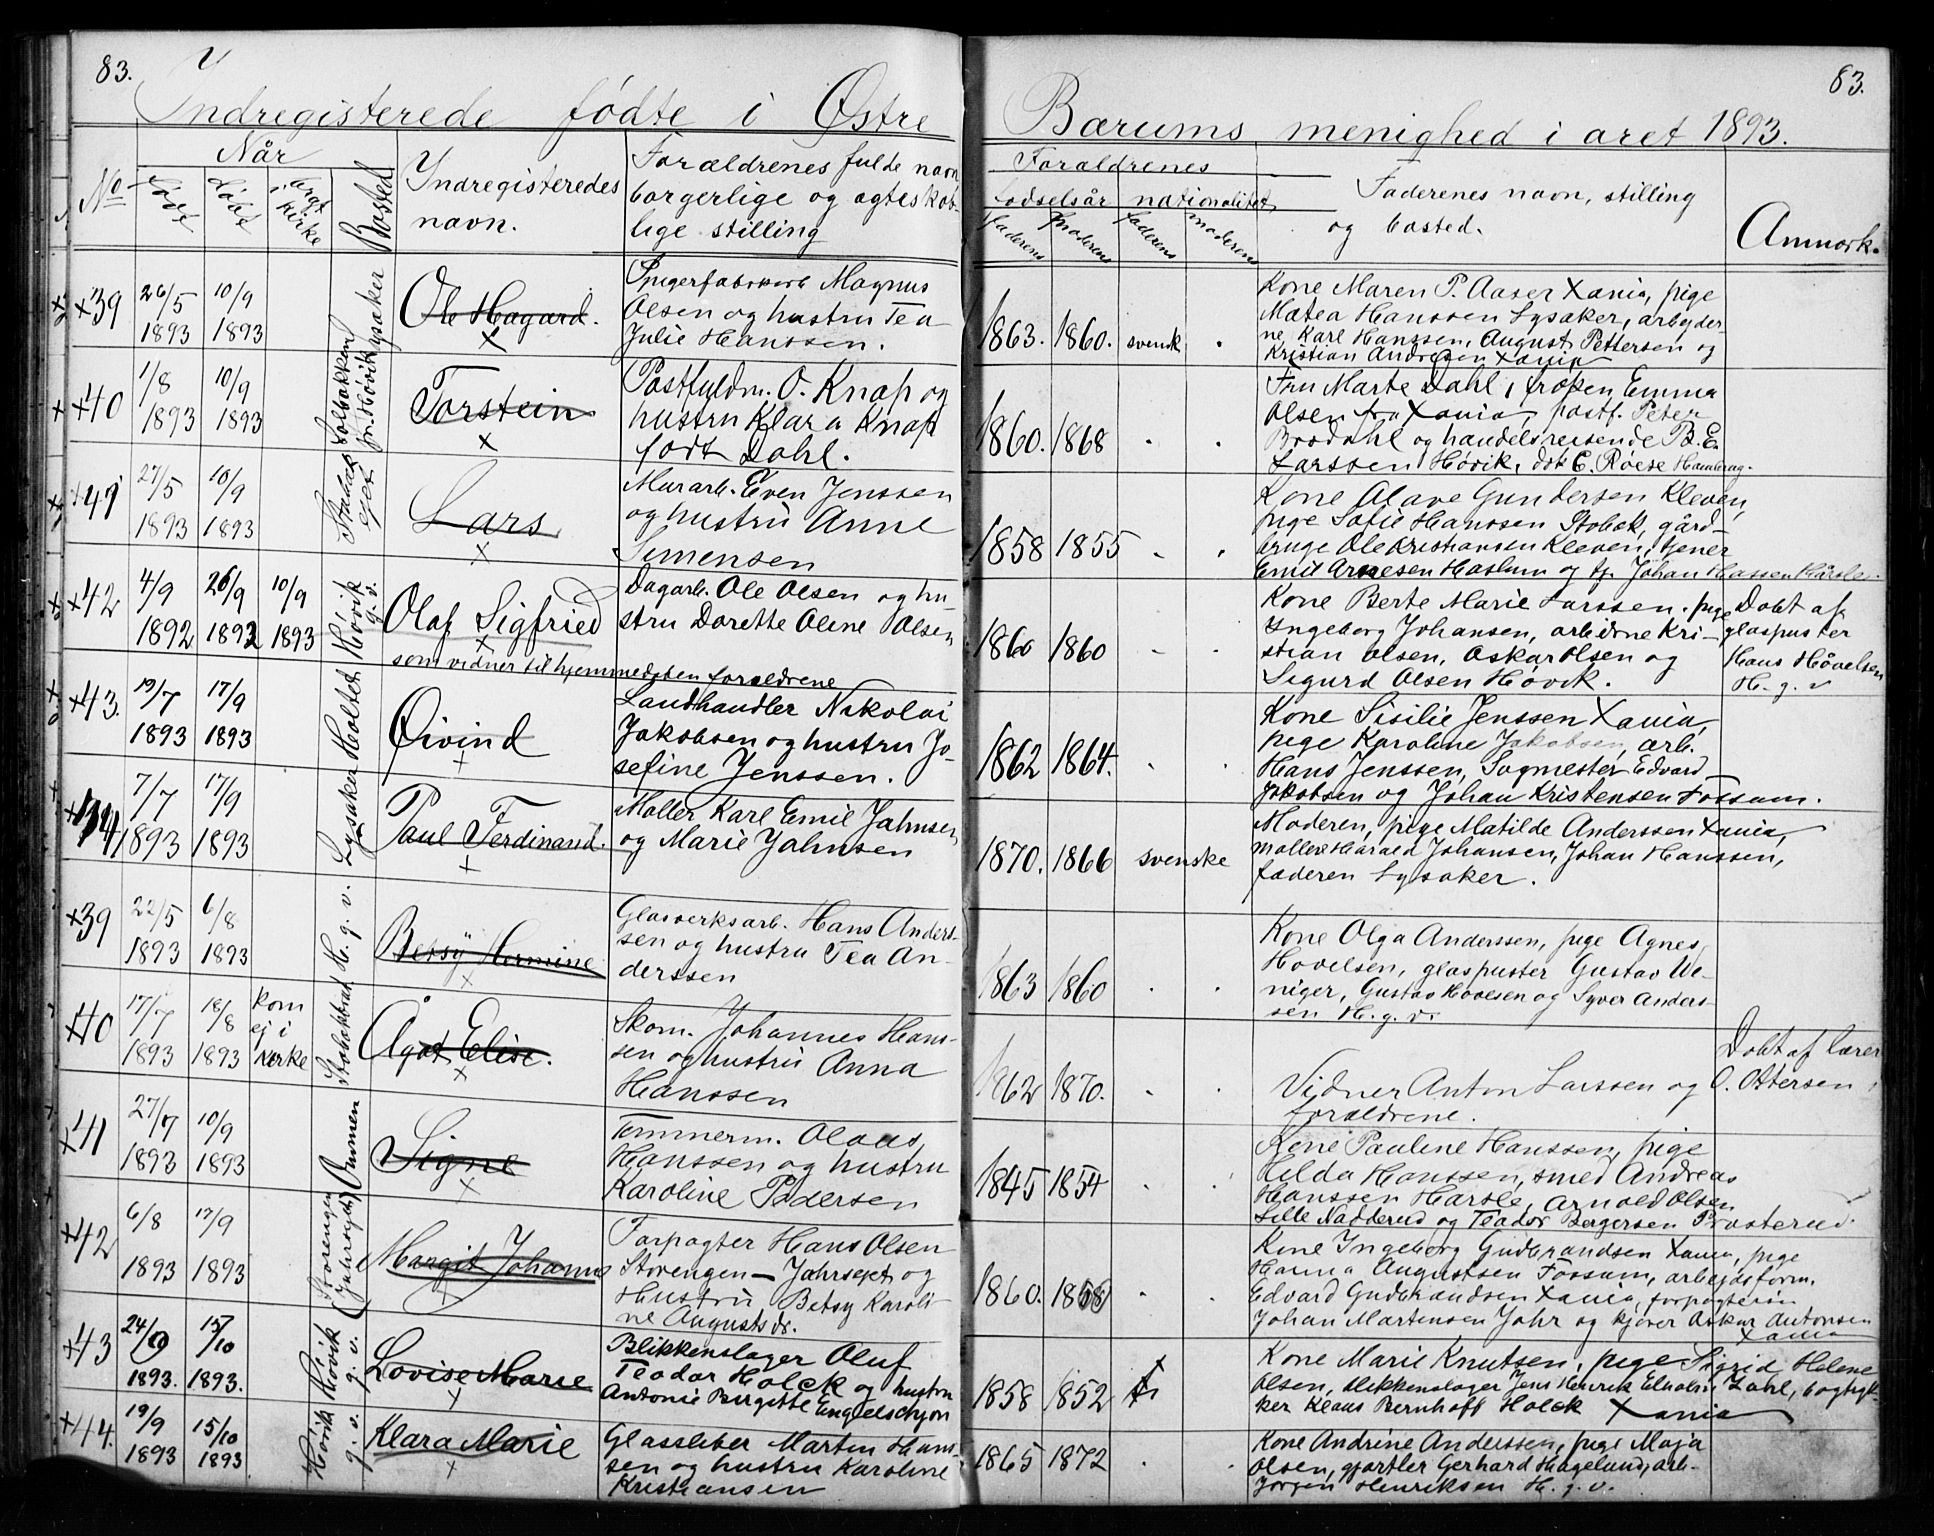 83.
Indregisterede fødte i Østre
Bærums menighed i aret 1893.
83.
No
Når
født
døbt
kirke
Bosted
Yndregisteredes
navn.
Forældrenes fulde navn
borgerlige og ægteskab-
lige stilling
Foraldrenes
fodselsår
nationalitet
faderens
moderens
faderens
moderens
Fadderenes navn, stilling
og bosted.
Anmærk.
×39
26/5 1893
10/9 1893
Lysaker
Ole Hagard.
×
Spigerfabrikarb Magnus
Olsen og hustru Tea
Julie Hanssen.
1863. 1860. svensk .
Kone Maren P. Aaser Xania, pige
Matea Hanssen Lysaker, arbejder-
ne Karl Hanssen, August Pettersen og
Kristian Andresen Xania
×40
1/8 1893
10/9 1893
Solbakken
pr. Høvik
Torstein
×
Postfuldm. O. Knap og
hustru Klara Knap
født Dahl.
1860. 1868 . .
Fru Marte Dahl, frøken Emma
Olsen fra Xania, postf. Peter
Brodahl og handelsreisende B. E.
Larssen Høvik, dok E. Røese
×41
27/5 1893
10/9 1893
Lars
×
Murarb. Even Jenssen
og hustru Anne
Simensen
1858 1855 . .
Kone Olave Gundersen Kleven,
pige Sofie Hanssen Stobek, gård-
bruge Ole Kristiansen Kleven, tjener
Emil Arnesen Haslum og tj. Johan Hassen Hårsle.
×42
4/9 1892
26/9 1892
10/9 1893
Høvik
g. v.
Olaf Sigfried
×
Dagarb. Ole Olsen og hu-
stru Dorette Oline Olsen
som vidner til hjemmedåben foraldrene
1860 1860 . .
Kone Berte Marie Larssen. pige
Ingeborg Johansen, arbeiderne Kri-
stian Olsen, Oskar Olsen og
Sigurd Olsen Høvik.
Døbt af
glaspuster
Hans Håvelsen
H. g. v
×43.
19/7 1893
17/9 1893
Holtet
Øivind
×
Landhandler Nikolai
Jakobsen og hustru Jo-
sefine Jenssen.
1862 1864. . .
Kone Sisilie Jenssen Xania,
pige Karoline Jakobsen, arb.
Hans Jenssen, Sagmester Edvard
Jakobsen og Johan Kristensen Fossum.
7/7 1893
17/9 1893
Lysaker
Paul Ferdinand.
×
Møller Karl Emil Jahnsen
og Marie Jahnsen
1870. 1866 svenske
Moderen, pige Matilde Anderssen Xania,
møllere Harald Johansen, Johan Hanssen,
faderen Lysaker.
×39
22/5 1893
6/8 1893
H. g. v.
Betsy Hermine
×
Glasverksarb. Hans Anders-
sen og hustru Tea An-
derssen
1863 1860 . .
Kone Olga Anderssen, pige Agnes
Hovelsen, glaspuster Gustav We-
niger, Gustav Hovelsen og Syver Anders-
sen H. g. v.
×40
17/7 1893
18/8 1893
kom
ej i
kirke
Ågot Elise.
×
Skom. Johannes Hans-
sen og hustru Anna
Hanssen
1862 1870. . .
Vidner Anton Larssen og
forældrene.
Døbt af lærer
O. Ottersen
×41
27/7 1893
10/9 1893
Signe
×
Tømmerm. Olaus
Hanssen og hustru
Karoline Pedersen
1845 1854 . .
Kone Pauline Hanssen, pige
Hilda Hanssen, smed Andreas
Hanssen Hårsle, Arnold Olsen
Lille Nadderud og Teodor Bergersen Prosterud.
×42
6/8 1893
17/9 1893
Storengen
(Jahrsejet)
Margit Johanne
Forpagter Hans Olsen
Storengen - Jahrsejet og
Hustru Betsy Karoli-
ne Augustsdr.
1860. 1858 . .
Kone Ingeborg Gudbrandsen Xania, pige
Hanna Augustsen Fossum, arbejdsform.
Edvard Gudbrandsen Xania, forpagteren
Johan Martensen Jahr og kjører Oskar Antonsen
Xania
×43
24/9 1893.
15/10 1893.
Høvik
g. v.
Lovise Marie
×
Blikkenslager Oluf
Teodor Holck og hustru
Antonie Birgitte Engelschjøn
1858 1852
Kone Marie Knutsen, pige Sigrid Helene
Olsen, blikkenslager Jens Henrik Elholm Dahl, bogtryk-
ker Klaus Bernhoft Holck Xania
×44.
19/9 1893
15/10 1893
Høvik
g. v.
Klara Marie
×
Glassliber Martin Hans-
sen og hustru Karoline
Kristiansen
1865 1872 . .
Kone Andrine Anderssen, pige Maja
Olsen, gjørtler Gerhard Hagelund, arb.
Jørgen Henriksen H. g. v.